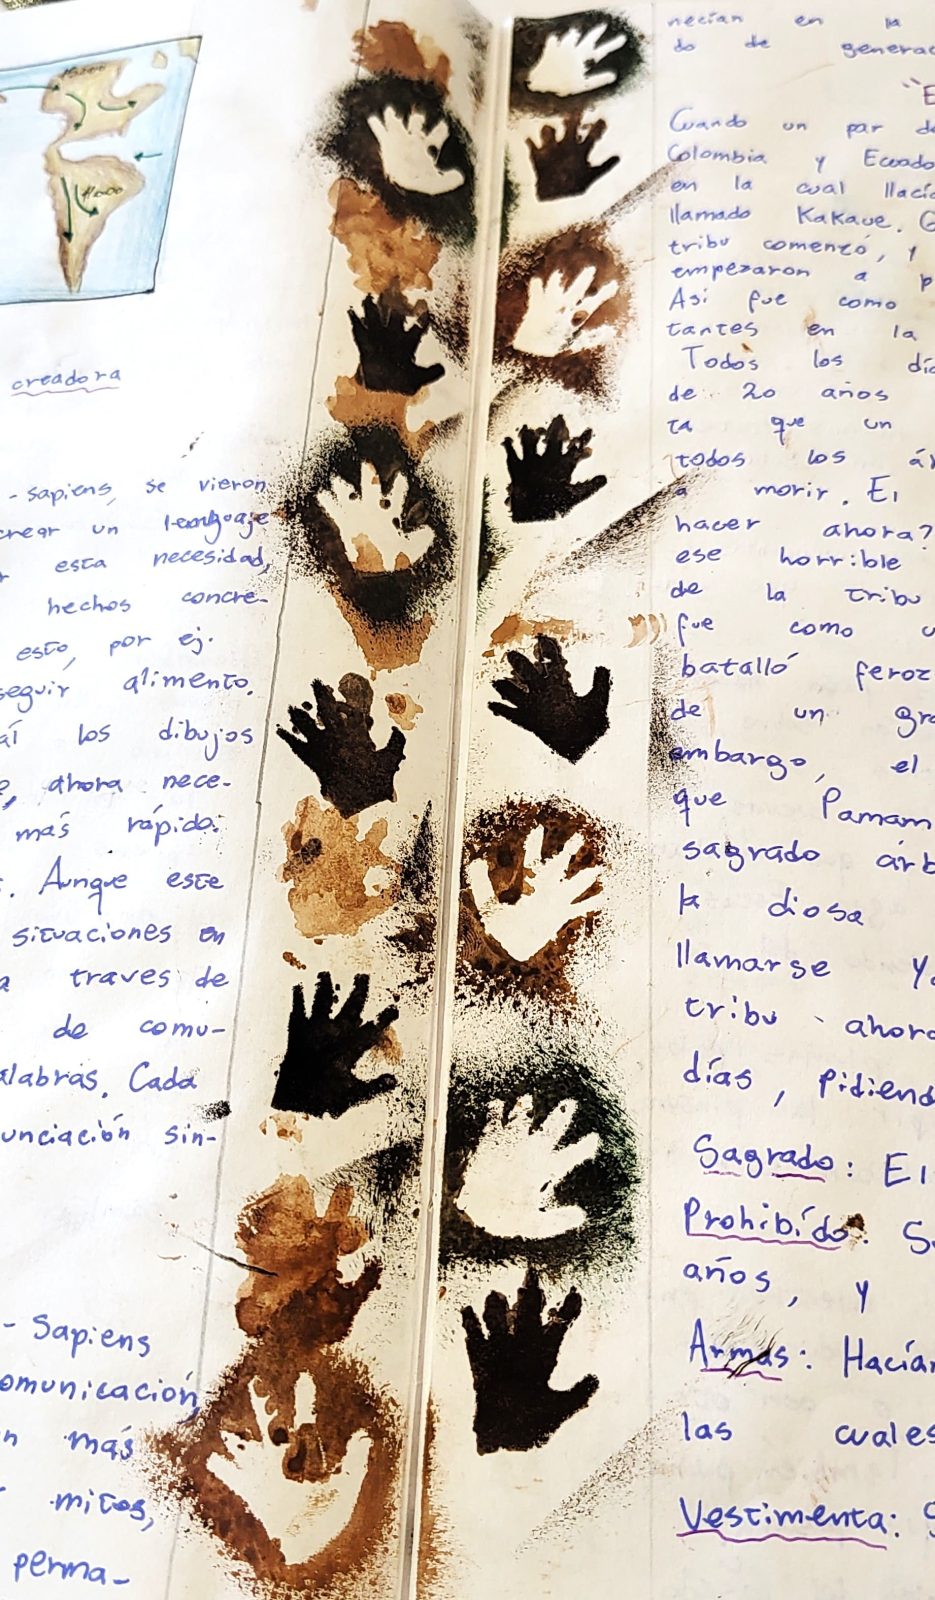 creadora
- sapiens, se vieron
crear un lenguaje
esta necesidad,
hechos concre-
esto, por ej.
seguir alimento.
los dibujos
ahora nece-
más rápido.
Aunque este
situaciones en
a traves de
de comu-
alabras. Cada
unciación sin-
- Sapiens
omunicación,
n más
mitos,
perma-
necían en la
do de generac
"E
Cuando un par de
Colombia y Ecuado
en la cual llací
llamado Kakaue. G
tribu comenzó, y
empezaron a p
Asi fue como
tantes en la
Todos los día
de 20 años
ta que un
todos los ár
a morir. El
hacer ahora?
ese horrible
de la tribu
fue como u
batalló feroz
de un gra
embargo, el
que Pamam
sagrado árb
la diosa
llamarse Ya
tribu ahora
días, pidiend
Sagrado: El
Prohibído: S
años, y
Armas: Hacían
las cuales
Vestimenta: S